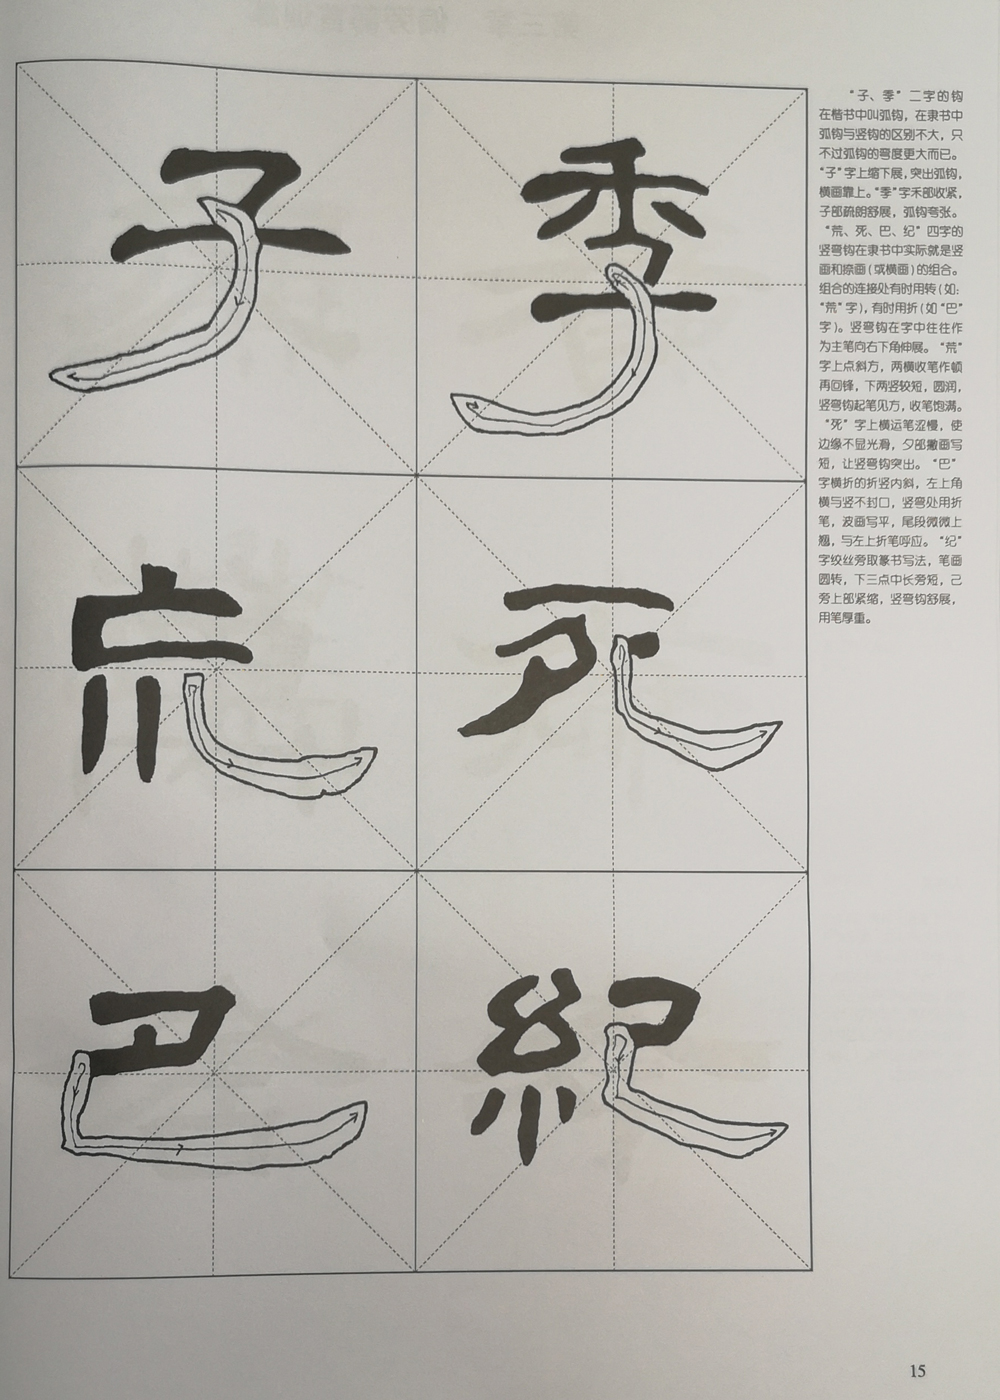 子 季
荒 死
巴 紀
“子、季”二字的钩
在楷书中叫弧钩，在隶书中
弧钩与竖钩的区别不大，只
不过弧钩的弯度更大而已。
“子”字上缩下展，突出弧钩，
横画靠上。“季”字禾部收紧，
子部疏朗舒展，弧钩夸张。
“荒、死、巴、纪”四字的
竖弯钩在隶书中实际就是竖
画和捺画（或横画）的组合。
组合的连接处有时用转（如：
“荒”字），有时用折（如“巴”
字）。竖弯钩在字中往往作
为主笔向右下角伸展。“荒”
字上点斜方，两横收笔作顿
再回锋，下两竖较短，圆润，
竖弯钩起笔见方，收笔饱满。
“死”字上横运笔涩慢，使
边缘不显光滑，夕部撇画写
短，让竖弯钩突出。“巴”
字横折的折竖内斜，左上角
横与竖不封口，竖弯处用折
笔，波画写平，尾段微微上
翘，与左上折笔呼应。“纪”
字绞丝旁取篆书写法，笔画
圆转，下三点中长旁短，己
旁上部紧缩，竖弯钩舒展，
用笔厚重。
15